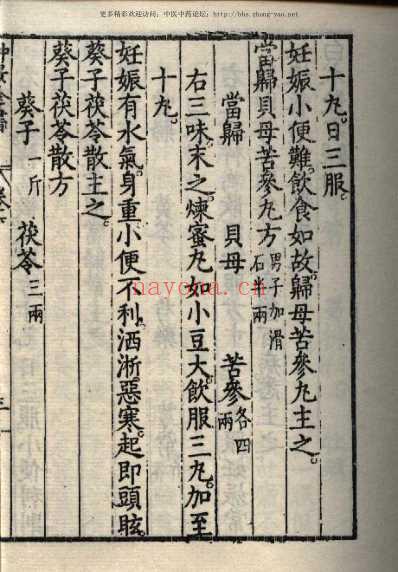 更多精彩欢迎访问：中医中药论坛：http://bbs.zhong-yao.net
十丸日三服
妊娠小便難飲食如故歸母苦參丸主之
當歸貝母苦參丸方 男子加滑石半兩
當歸 貝母 苦參各四兩
右三味末之煉蜜丸如小豆大飲服三丸加至
十丸
妊娠有水氣身重小便不利洒淅惡寒起即頭眩
葵子茯苓散主之
葵子茯苓散方
葵子一斤 茯苓三兩
nayona.cn